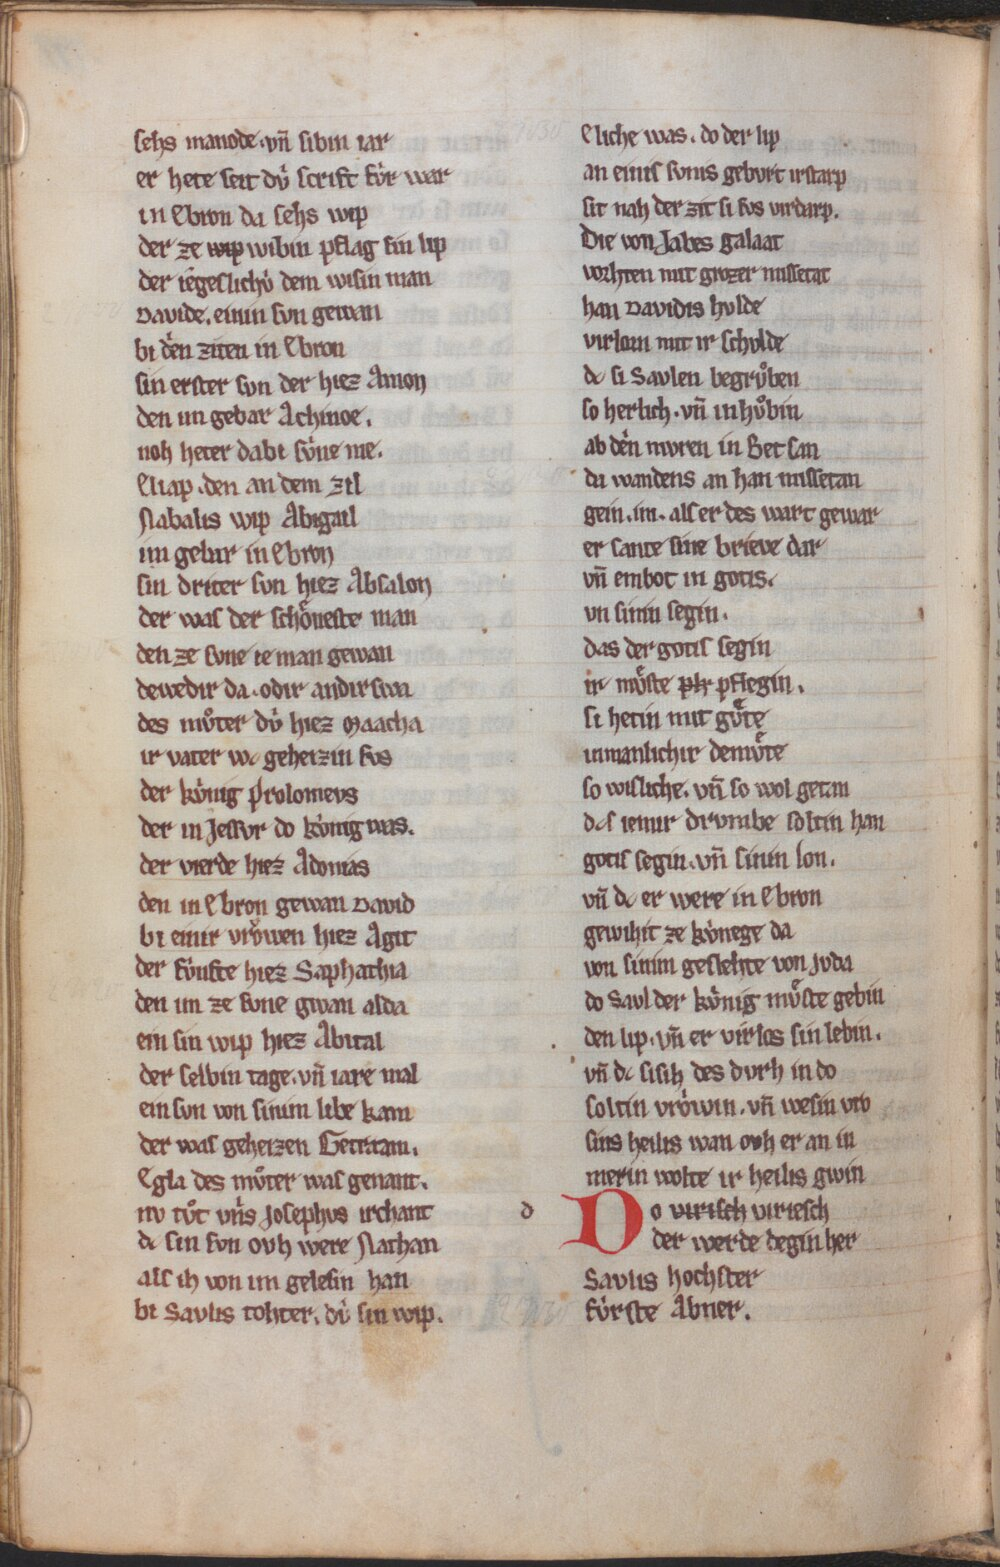 sehs manode. vn̄ sibin iar
er hete seit dv̍ scrift fv̍r war
in Ebron da sehs wip
der ze wip wibin pflag sin lip
der iegeslichv̍ dem wisin man
Davide. einin svn gewan
bi den ziten in Ebron
sin erster svn der hiez Amon
den im gebar Achinoe.
noh heter dabi sv̍ne me.
Eliap. den an dem zil
Nabalis wip Abigail
im gebar in Ebron
sin driter svn hiez Absalon
der was der schoͤneste man
den ze svne ie man gewan
dewedir da. odir andirswa
des mvͦter dv̍ hiez Maacha
ir vater wc geheizin svs
der kv̍nig Ptolomevs
der in Jessvr do kv̍nig was.
der vierde hiez Adonias
den in Ebron gewan David
bi einir vroͮwen hiez Agit
der fv̍nfte hiez Saphathia
den im ze svne gwan alda
ein sin wip hiez Abital
der selbin tage. vn̄ iare mal
ein svn von sinim libe kam
der was geheizen Getraam.
Egla des mvͦter was genant.
nv tvͦt vn̍s Josephvs irchant
dc sin svn ovh were Nathan
als ih von im gelesin han
bi Savlis tohter. dv̍ sin wip.
Eliche was. do der lip
an einis svnis gebvrt irstarp
sit nah der zit si svs virdarp.
Die von Jabes galaat
vorhten mit grozer missetat
han Davidis hvlde
virlorn mit ir schvlde
dc si Savlen begrvͦben
so herlich. vn̄ in hvͦbin
ab den mvren in Bet san
da wandens an han missetan
gein. im. als er des wart gewar
er sante sine brieve dar
vn̄ embot in gotis.
vn sinin segin.
das der gotis segin
ir mvͤste pfle pflegin.
si hetin mit gvͤte
in manlichir demvͤte
so wisliche. vn̄ so wol getan
das iemir drvmbe soltin han
gotis segin. vn̄ sinin lon.
vn̄ dc er were in Ebron
gewihit ze kv̍nege da
von sinim geslehte von Jvda
do Savl der kv̍nig mvͤste gebin
den lip. vn̄ er virlos sin lebin.
vn̄ dc si sih des dvrh in do
soltin vroͮwin. vn̄ wesin vro
sins heilis wan ovh er an in
merin wolte ir heilis gwin
d
Do virisch viriesch
der werde degin her
Savlis hochster
fv̍rste Abner.